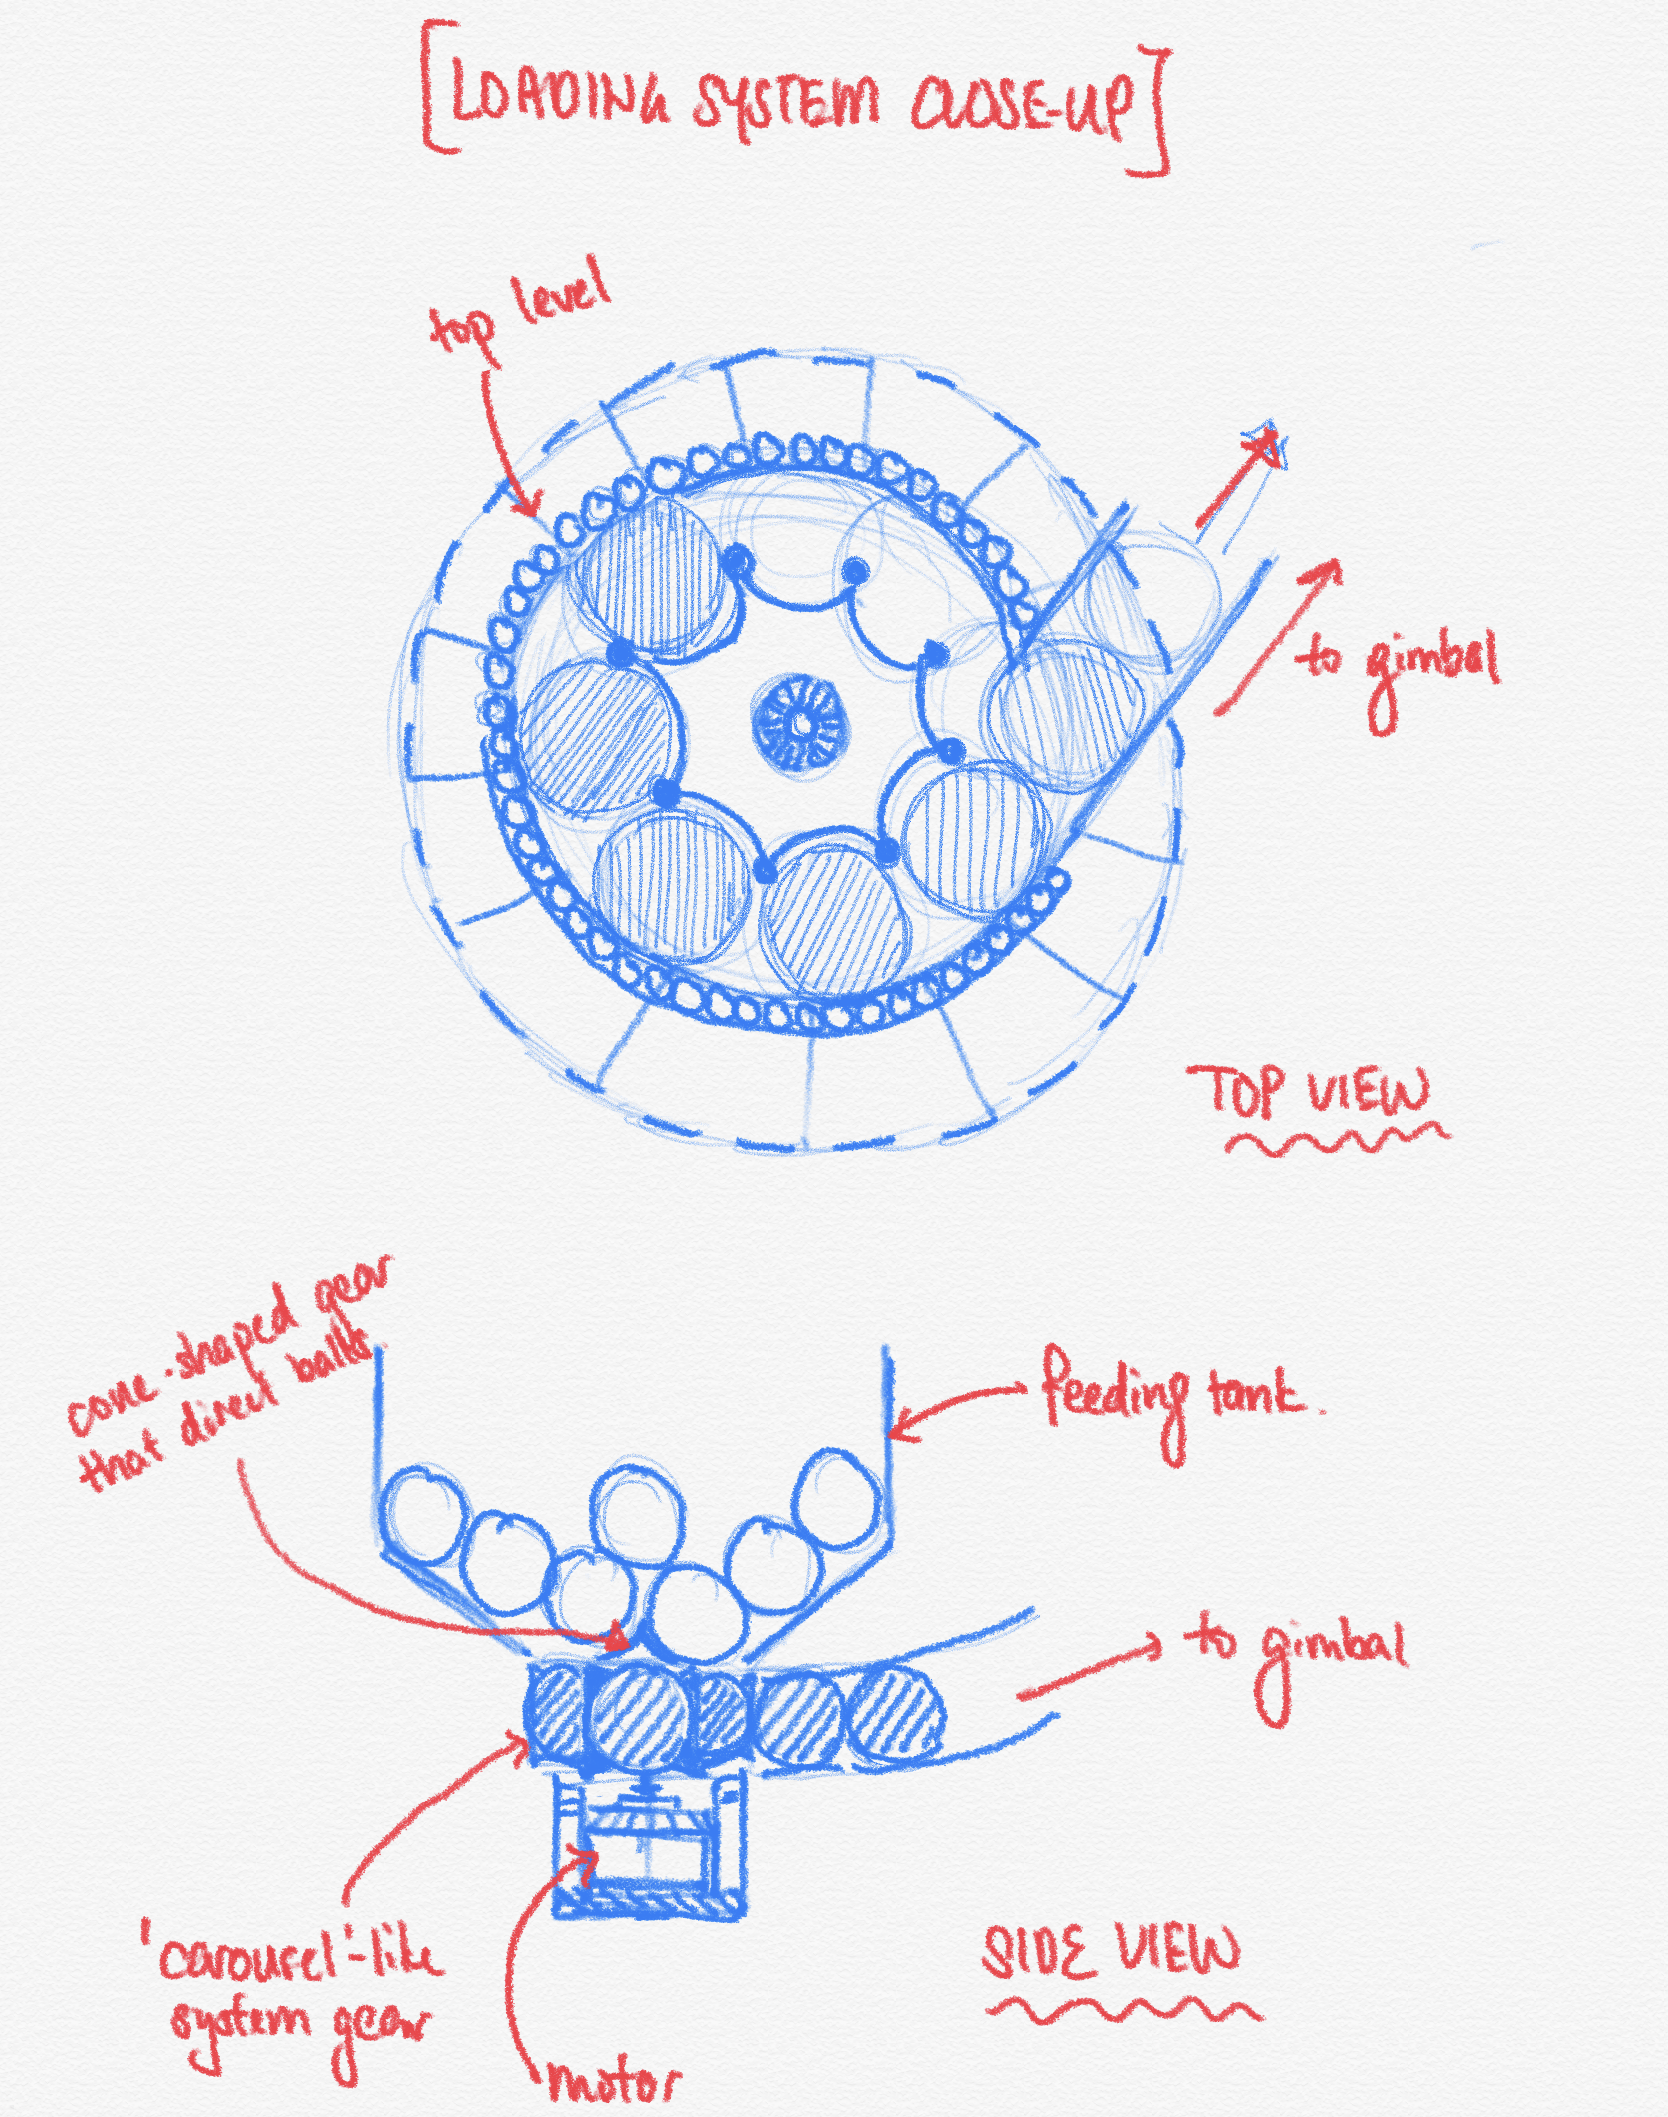 [LOADING SYSTEM CLOSE-UP]
top level
to gimbal
TOP VIEW
cone-shaped gear
that direct balls.
feeding tank.
to gimbal
'carousel'-like
system gear
motor
SIDE VIEW